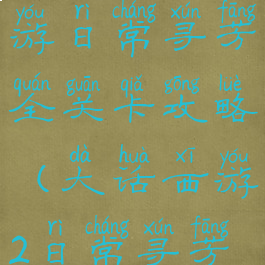 yóu rì cháng xún fāng
游日常寻芳
quán guān qiǎ gōng lüè
全关卡攻略
dà huà xī yóu
(大话西游
rì cháng xún fāng
2日常寻芳